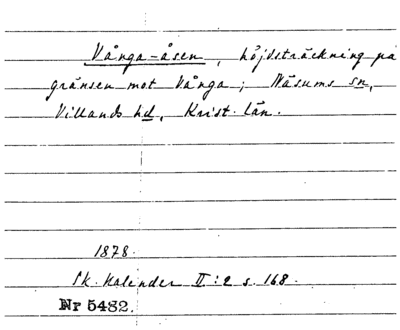 Vånga-åsen, höjdsträckning på
gränsen mot Vånga; Näsums sn,
Villands hd, Krist. län.
1878.
Sk. Kalender II:2 s. 168.
Nr 5482.